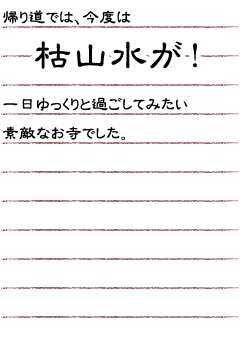 帰り道では、今度は
枯山水が！
一日ゆっくりと過ごしてみたい
素敵なお寺でした。